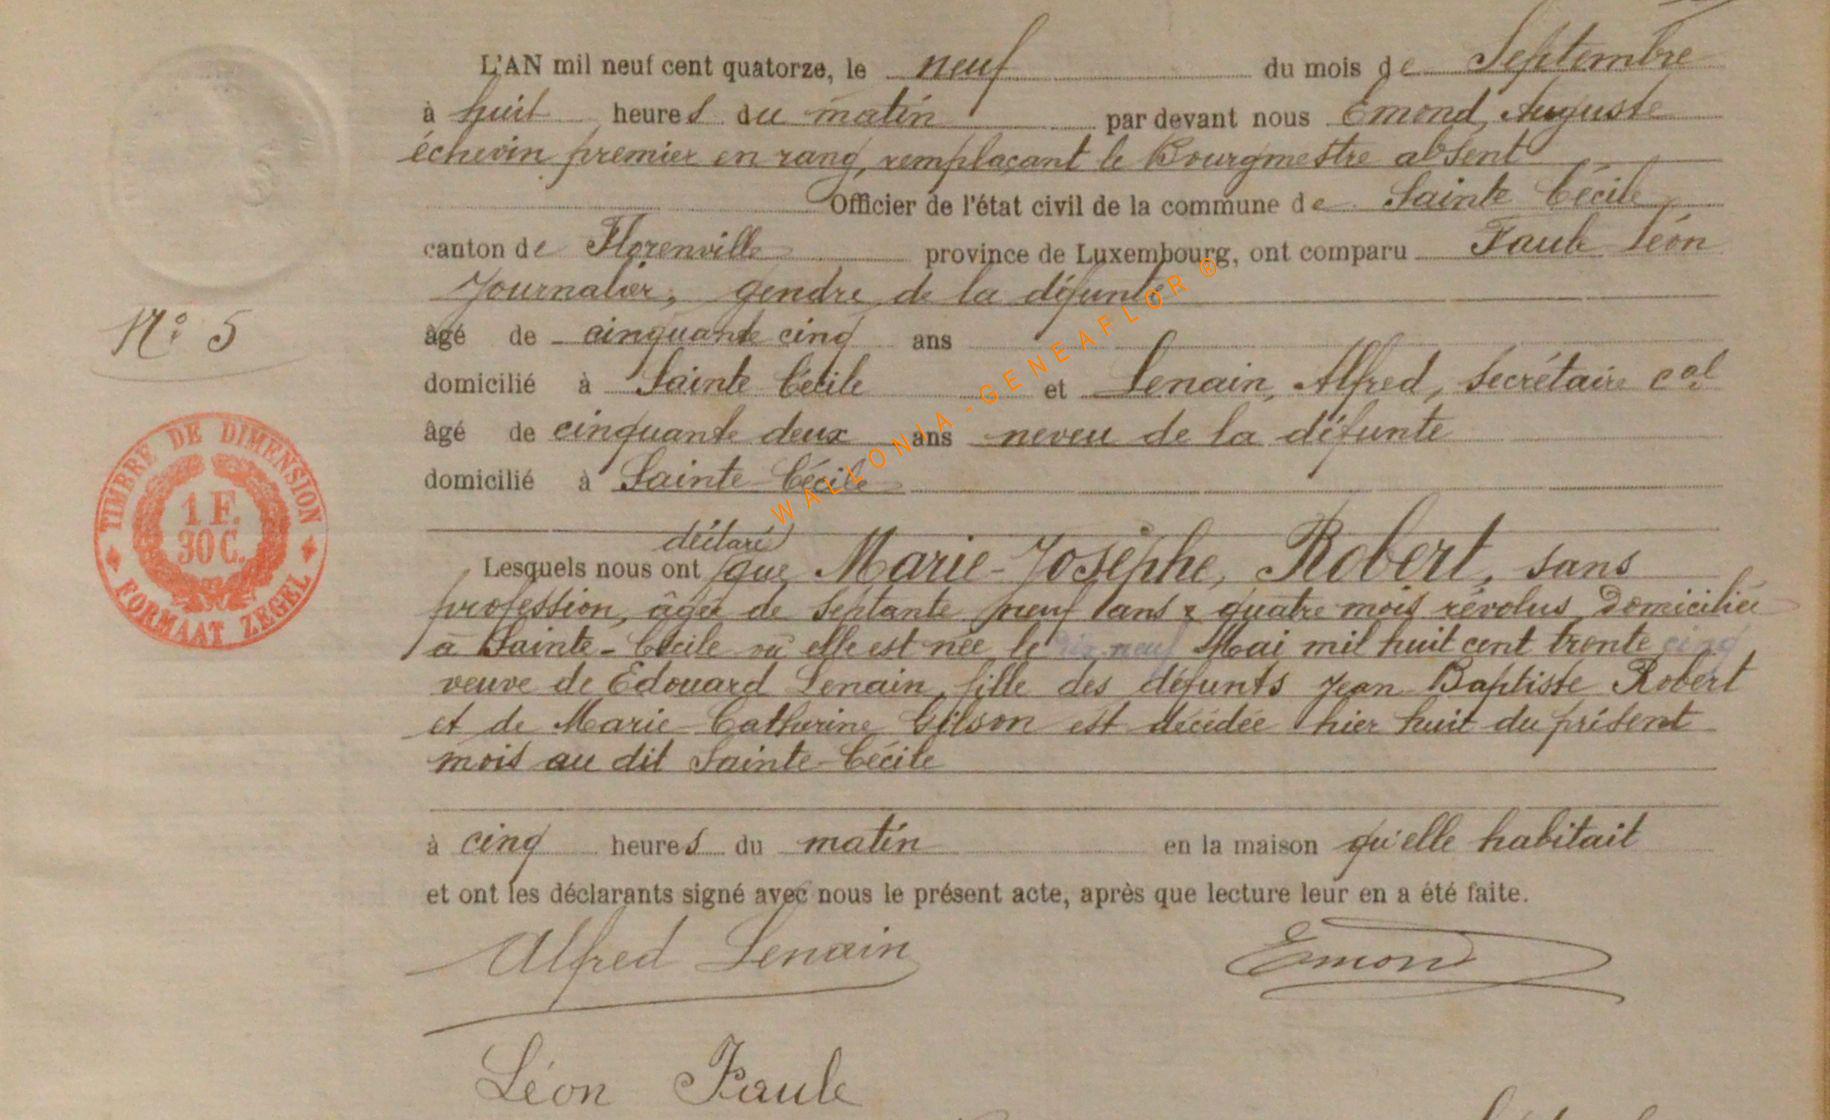 L'AN mil neuf cent quatorze, le neuf du mois de Septembre
à huit heures du matin par devant nous Emond, Auguste
échevin premier en rang, remplaçant le Bourgmestre absent
Officier de l'état civil de la commune de Sainte Cécile
canton de Florenville province de Luxembourg, ont comparu Faule Léon
Journalier, gendre de la défunte
N° 5
âgé de cinquante cinq ans
domicilié à Sainte Cécile et Lenain, Alfred, secrétaire cal
âgé de cinquante deux ans neveu de la défunte
domicilié à Sainte Cécile
WALLONIA-GENEAFLOR ®
TIMBRE DE DIMENSION
1 F.
30 C.
FORMAAT ZEGEL
déclaré
Lesquels nous ont que Marie-Josèphe, Robert, sans
profession, âgée de septante neuf ans & quatre mois révolus domiciliée
à Sainte-Cécile où elle est née le dix neuf Mai mil huit cent trente cinq
veuve de Edouard Lenain, fille des défunts Jean Baptiste Robert
et de Marie-Catherine Gilson est décédée hier huit du présent
mois au dit Sainte-Cécile
à cinq heures du matin en la maison qu'elle habitait
et ont les déclarants signé avec nous le présent acte, après que lecture leur en a été faite.
Alfred Lenain Emond
Léon Faule